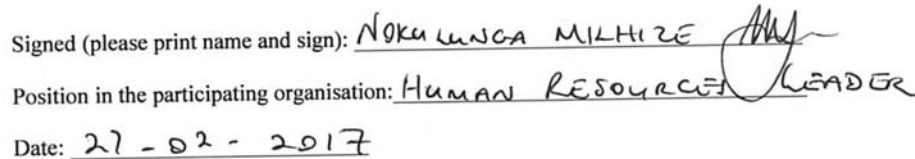 Signed (please print name and sign): NOKULUNGA MILHIZE
Position in the participating organisation: HUMAN RESOURCES LEADER
Date: 27 - 02 - 2017